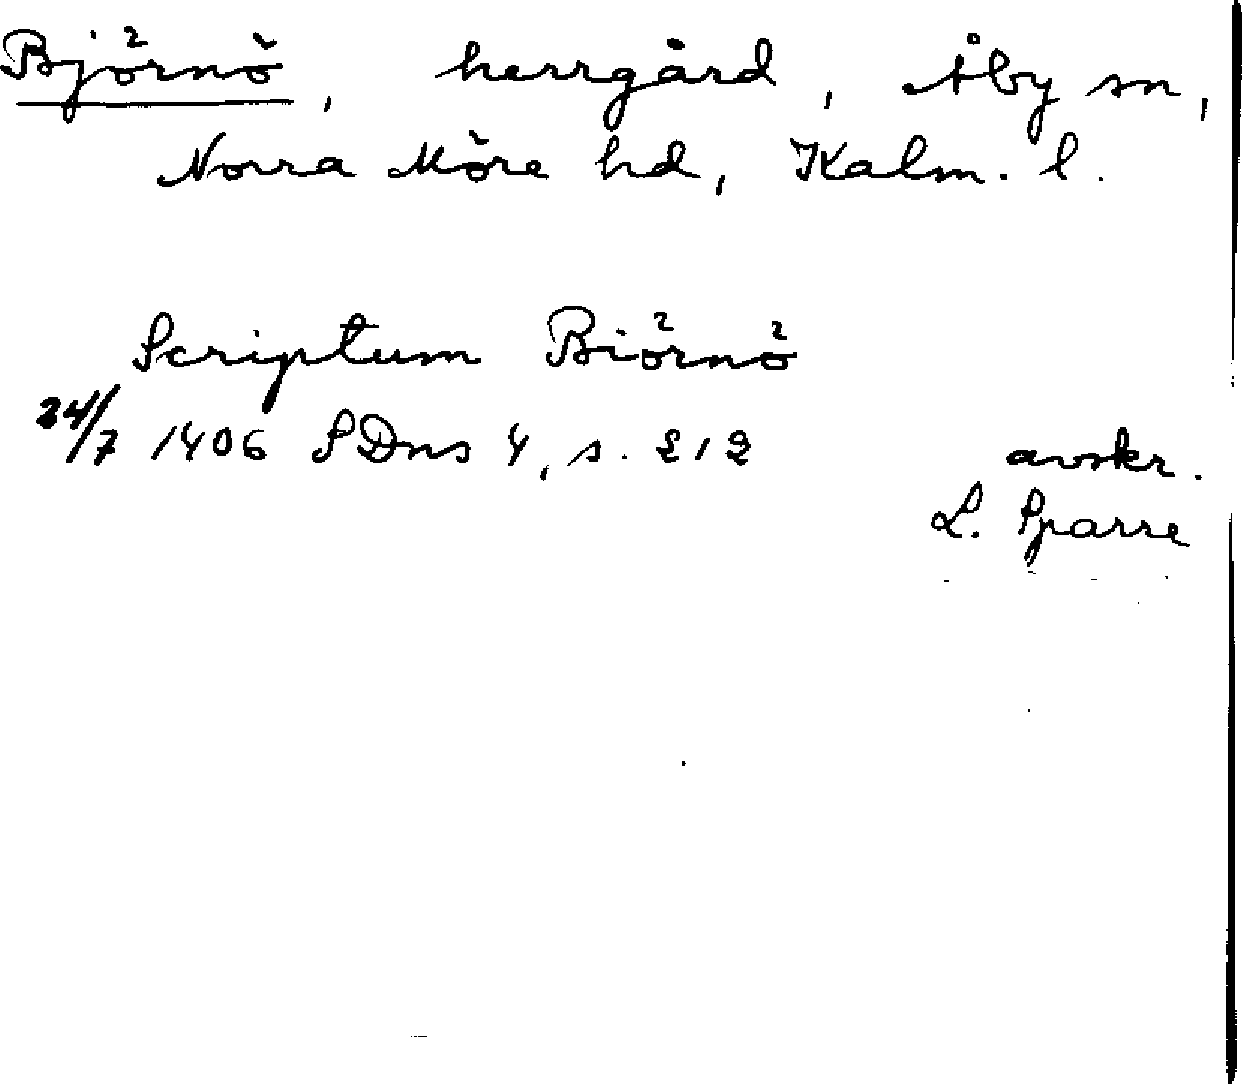 Björnö, herrgård, Åby sn,
Norra Möre hd, Kalm. l.
Scriptum Biörnö
24/7 1406 SDns 4, s. 212
avskr.
L. Sparre